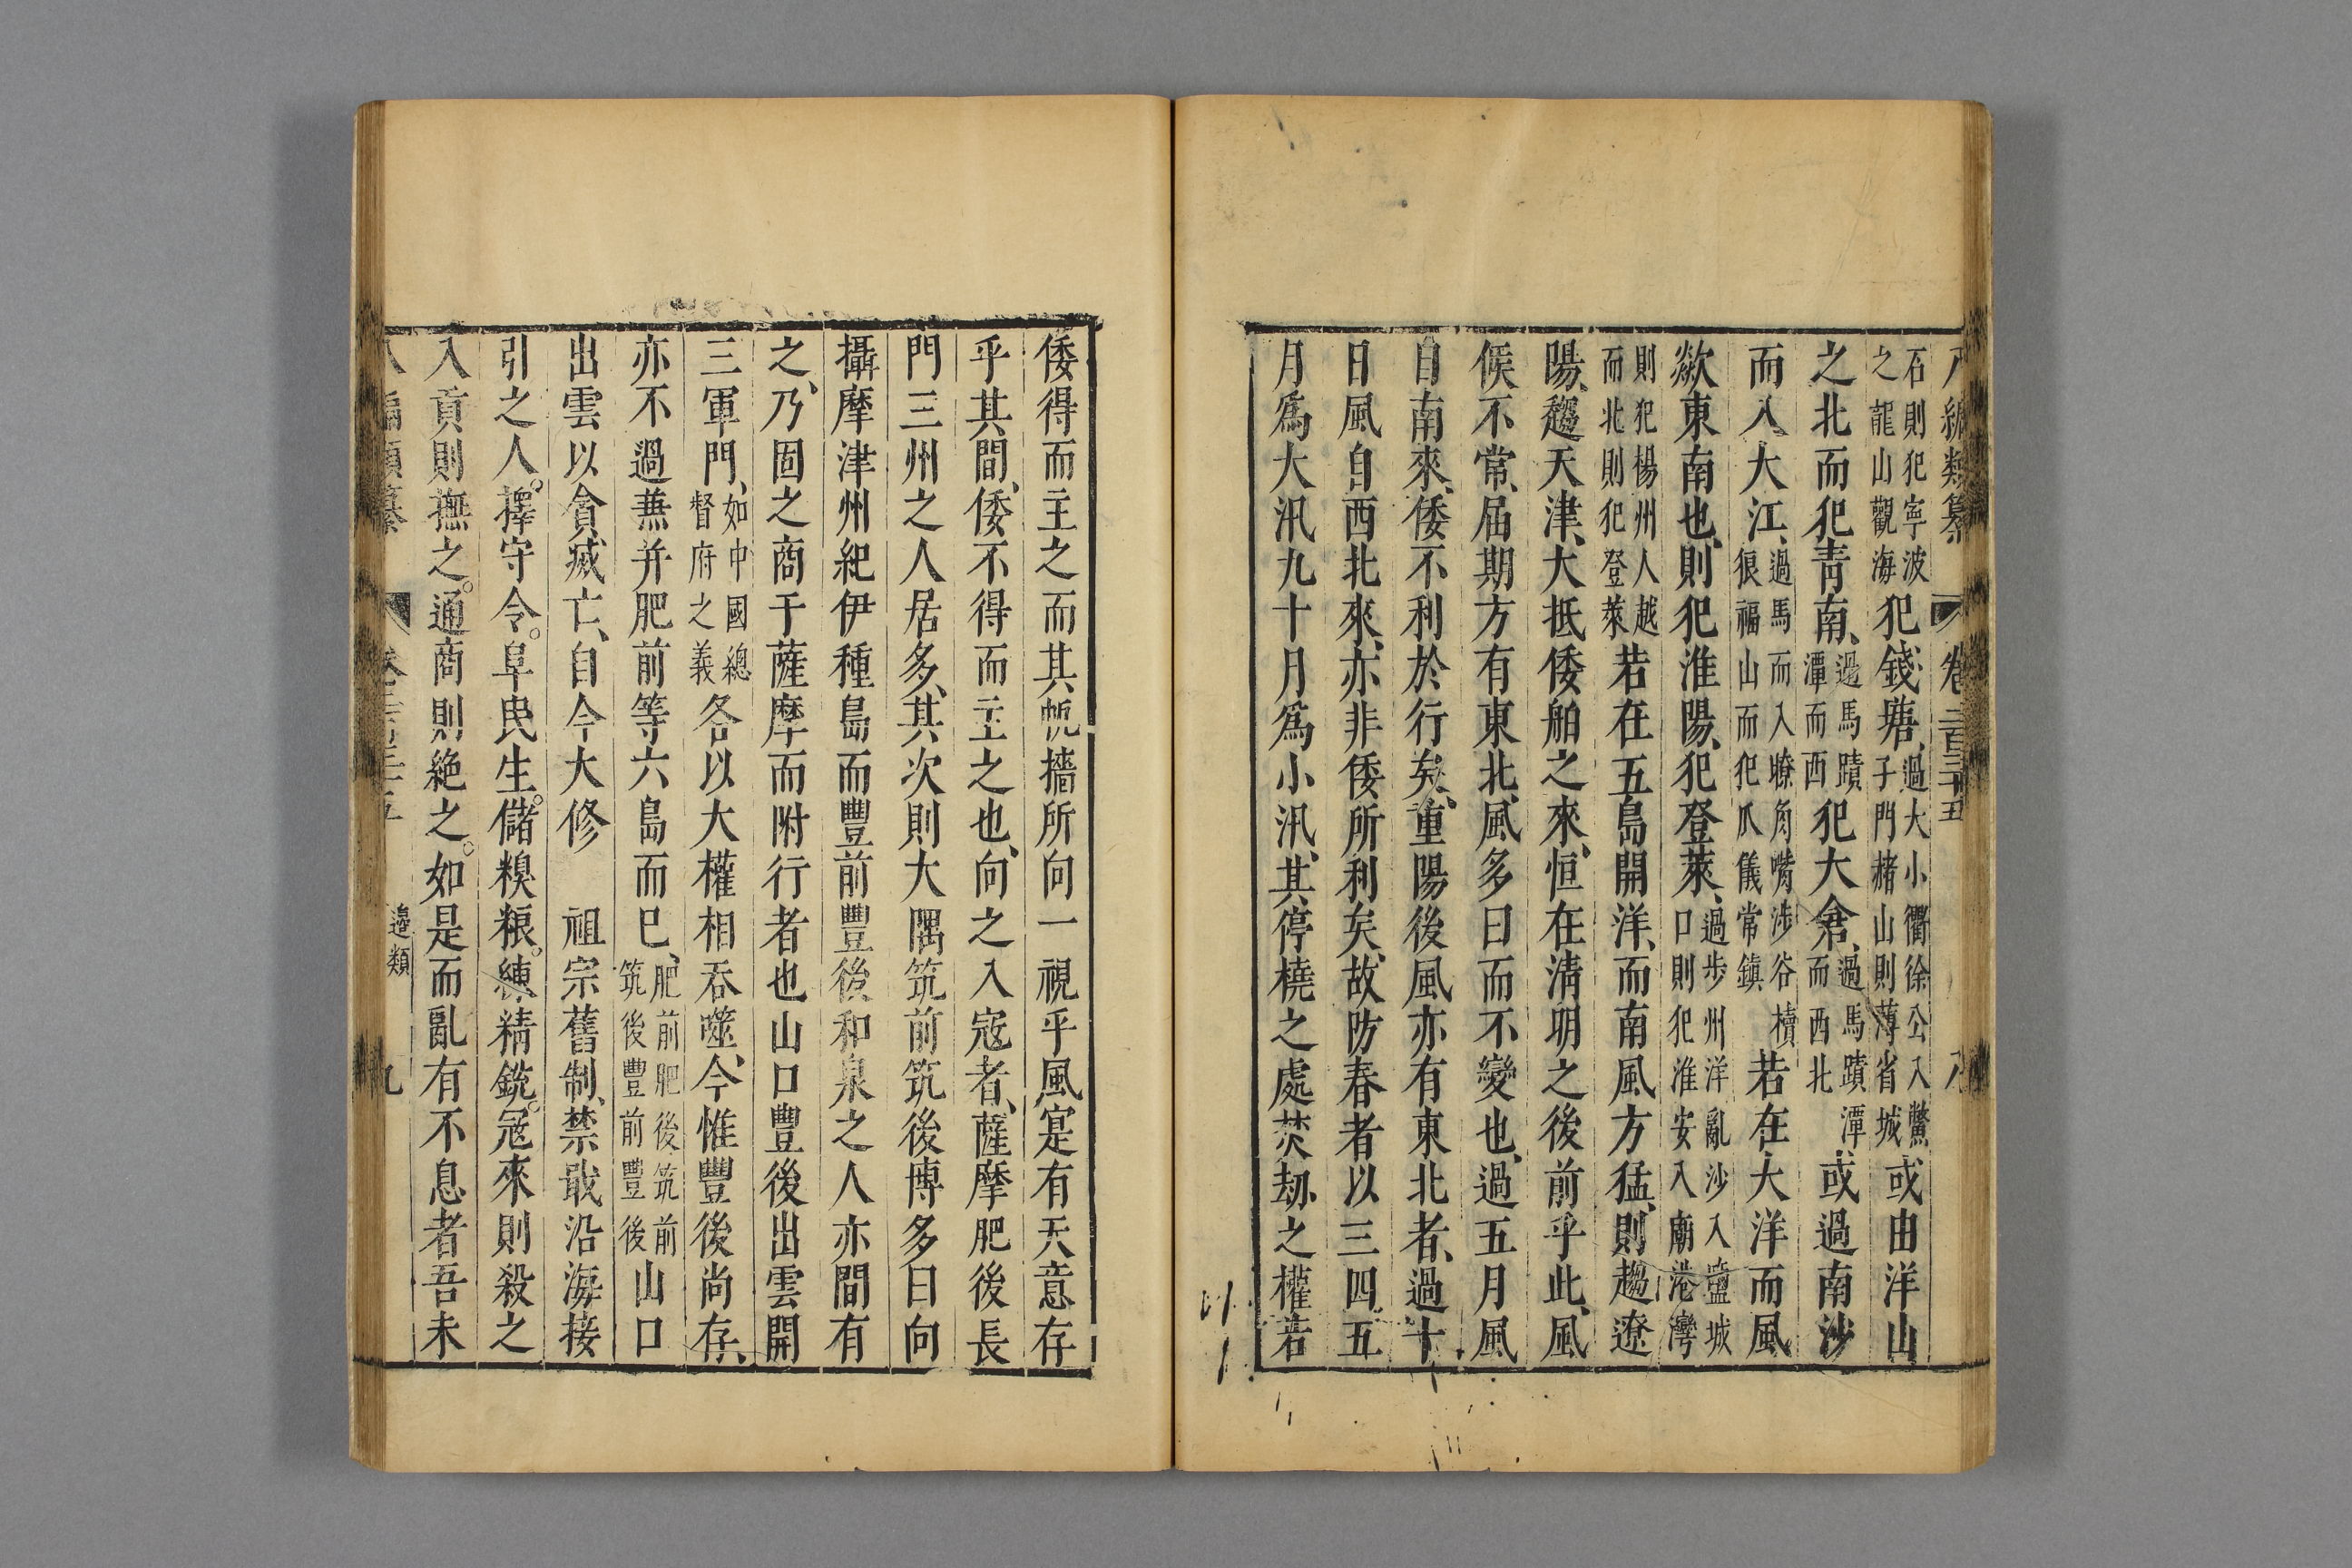 八編類纂 卷二百三十五 八
石則犯寧波之龍山觀海犯錢塘、過大小衢徐公入鱉子門赭山則薄省城或由洋山
之北而犯靑南、過馬蹟潭而西犯大倉、過馬蹟潭而西北或過南沙
而入大江、過馬而入瞭角嘴涉谷積狼福山而犯爪儀常鎭若在大洋而風
歘東南也、則犯淮陽、犯登萊、過步州洋亂沙入鹽城口則犯淮安入廟港灣
則犯楊州人越而北則犯登萊若在五島開洋、而南風方猛、則趨遼
陽、趨天津、大抵倭舶之來、恒在淸明之後前乎此、風
候不常、届期方有東北風、多日而不變也、過五月風
自南來、倭不利於行矣、重陽後風亦有東北者、過十
日風自西北來、亦非倭所利矣、故防春者以三四五
月爲大汛九十月爲小汛、其停橈之處焚劫之權若
倭得而主之而其帆檣所向一視乎風寔有天意存
乎其間、倭不得而主之也、向之入寇者、薩摩肥後長
門三州之人居多、其次則大隅筑前筑後博多日向
攝摩津州紀伊種島而豐前豐後和泉之人亦間有
之、乃固之商于薩摩而附行者也山口豐後出雲開
三軍門、如中國總督府之義各以大權相吞噬、今惟豐後尚存、
亦不過兼并肥前等六島而巳、肥前肥後筑前筑後豐前豐後山口
出雲以貪㓕亡、自今大修 祖宗舊制、禁戢沿海接
引之人。擇守令。阜民生。儲糗粮。練精銳。寇來則殺之
入貢則撫之。通商則絶之。如是而亂有不息者吾未
八編類纂 卷二百三十五 邊類 九